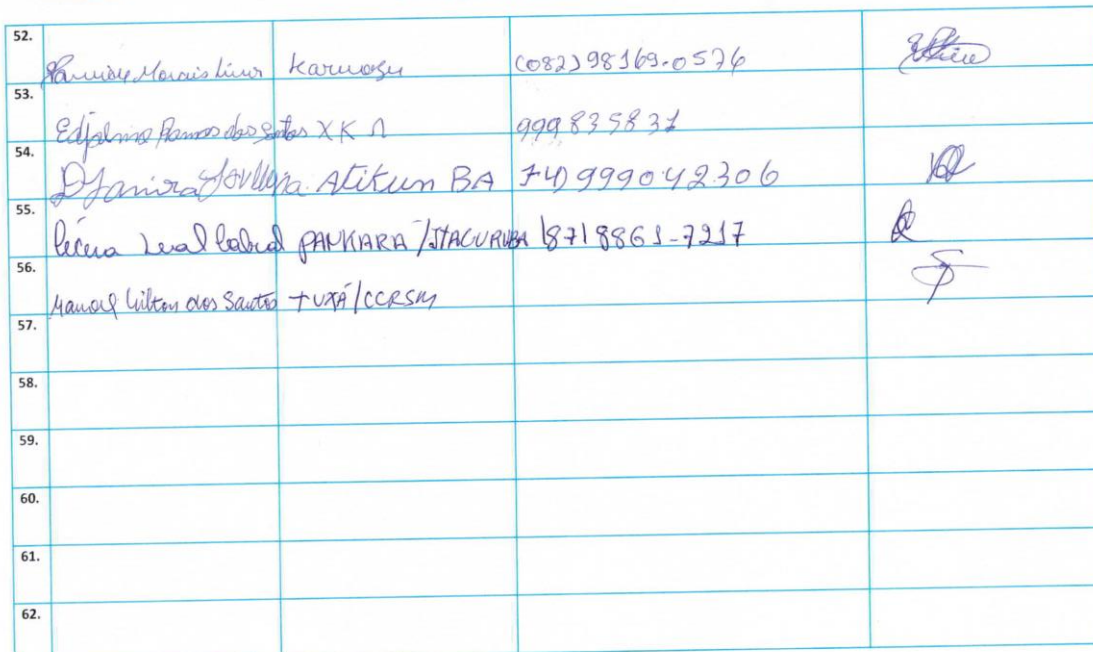 52. Morais Lima Karuazu (082) 98169.0576
53. Edjalmo Ramos dos Santos XKA 999835831
54. Djanira Atikun BA 74) 999042306
55. Leal Cabral PANKARA / ITACURUBA (87) 8861-7217
56. Manoel Uilton dos Santos TUXÁ/CCRSM
57.
58.
59.
60.
61.
62.